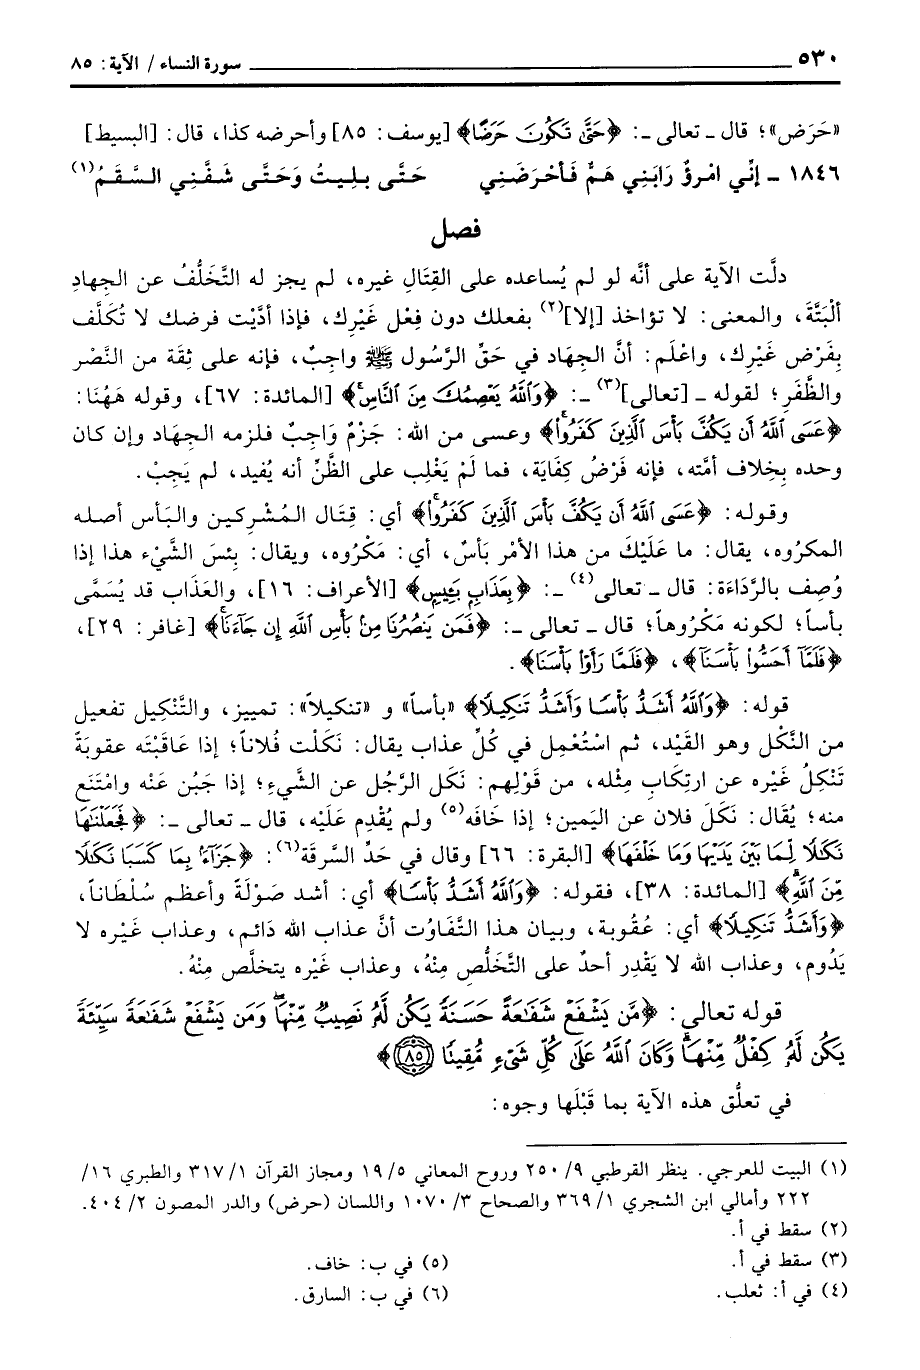 ٥٣٠ سورة النساء / الآية: ٨٥
«حَرَض»؛ قال ـ تعالى ـ: ﴿حَتَّى تَكُونَ حَرَضًا﴾ [يوسف: ٨٥] وأحرضه كذا، قال: [البسيط]
١٨٤٦ ـ إنِّي امْرؤٌ رَابَنِي هَمٌّ فَأحْرَضَنِي حَتَّى بلِيتُ وَحَتَّى شَفَّنِي السَّقَمُ(١)
فصل
دلَّت الآية على أنَّه لو لم يُساعده على القِتَالِ غيره، لم يجز له التَّخَلُّفُ عن الجِهادِ
ألْبَتَّةَ، والمعنى: لا تؤاخذ [إلا](٢) بفعلك دون فِعْل غَيْرِك، فإذا أدَّيْت فرضك لا تُكَلَّف
بِفَرْض غَيْرِك، واعْلَم: أنَّ الجِهَاد في حَقِّ الرَّسُول ﷺ واجِبٌ، فإنه على ثِقَة من النَّصْر
والظَّفَرِ؛ لقوله ـ[تعالى](٣) ـ: ﴿وَاللَّهُ يَعْصِمُكَ مِنَ النَّاسِ﴾ [المائدة: ٦٧]، وقوله هَهُنَا:
﴿عَسَى اللَّهُ أَن يَكُفَّ بَأْسَ الَّذِينَ كَفَرُوا﴾ وعسى من الله: جَزْمٌ وَاجِبٌ فلزمه الجِهَاد وإن كان
وحده بِخِلاف أمَّته، فإنه فَرْضُ كِفَايَة، فما لَمْ يَغْلِب على الظَّنِّ أنه يُفيد، لم يَجِبْ.
وقوله: ﴿عَسَى اللَّهُ أَن يَكُفَّ بَأْسَ الَّذِينَ كَفَرُوا﴾ أي: قِتَال المُشْرِكين والبَأس أصله
المكرُوه، يقال: ما عَلَيْكَ من هذا الأمْر بَأسٌ، أي: مَكْرُوه، ويقال: بِئسَ الشَّيْء هذا إذا
وُصِف بالرَّدَاءَة: قال ـ تعالى(٤) ـ: ﴿بِعَذَابٍ بَئِيسٍ﴾ [الأعراف: ١٦]، والعَذَاب قد يُسَمَّى
بأساً؛ لكونه مَكْرُوهاً؛ قال ـ تعالى ـ: ﴿فَمَن يَنصُرُنَا مِنْ بَأْسِ اللَّهِ إِن جَاءَنَا﴾ [غافر: ٢٩]،
﴿فَلَمَّا أَحَسُّوا بَأْسَنَا﴾، ﴿فَلَمَّا رَأَوْا بَأْسَنَا﴾.
قوله: ﴿وَاللَّهُ أَشَدُّ بَأْسًا وَأَشَدُّ تَنكِيلًا﴾ «بأساً» و «تنكيلاً»: تمييز، والتَّنْكِيل تفعيل
من النَّكْل وهو القَيْد، ثم اسْتُعْمِل في كُلِّ عذاب يقال: نَكَلْت فُلاناً؛ إذا عَاقَبْتَه عقوبَةً
تَنْكِلُ غَيْره عن ارتِكَابِ مِثْله، من قَوْلِهم: نَكَل الرَّجُل عن الشَّيءِ؛ إذا جَبُن عَنْه وامْتَنَع
منه؛ يُقَال: نَكَلَ فلان عن اليَمين؛ إذا خَافَه(٥) ولم يُقْدِم عَلَيْه، قال ـ تعالى ـ: ﴿فَجَعَلْنَاهَا
نَكَالًا لِمَا بَيْنَ يَدَيْهَا وَمَا خَلْفَهَا﴾ [البقرة: ٦٦] وقال في حَدِّ السَّرقَة(٦): ﴿جَزَاءً بِمَا كَسَبَا نَكَالًا
مِّنَ اللَّهِ﴾ [المائدة: ٣٨]، فقوله: ﴿وَاللَّهُ أَشَدُّ بَأْسًا﴾ أي: أشد صَوْلَةً وأعظم سُلْطَاناً،
﴿وَأَشَدُّ تَنكِيلًا﴾ أي: عُقُوبة، وبيان هذا التَّفَاوُت أنَّ عذاب الله دَائم، وعذاب غَيْره لا
يَدُوم، وعذاب الله لا يَقْدِر أحدٌ على التَّخَلُّصِ مِنْهُ، وعذاب غَيْره يتخلَّص مِنْهُ.
قوله تعالى: ﴿مَّن يَشْفَعْ شَفَاعَةً حَسَنَةً يَكُن لَّهُ نَصِيبٌ مِّنْهَا وَمَن يَشْفَعْ شَفَاعَةً سَيِّئَةً
يَكُن لَّهُ كِفْلٌ مِّنْهَا وَكَانَ اللَّهُ عَلَى كُلِّ شَيْءٍ مُّقِيتًا ٨٥﴾
في تعلُّق هذه الآية بما قَبْلَها وجوه:
(١) البيت للعرجي. ينظر القرطبي ٩/ ٢٥٠ وروح المعاني ٥/ ١٩ ومجاز القرآن ١/ ٣١٧ والطبري ١٦/
٢٢٢ وأمالي ابن الشجري ١/ ٣٦٩ والصحاح ٣/ ١٠٧٠ واللسان (حرض) والدر المصون ٢/ ٤٠٤.
(٢) سقط في أ.
(٣) سقط في أ. (٥) في ب: خاف.
(٤) في أ: ثعلب. (٦) في ب: السارق.